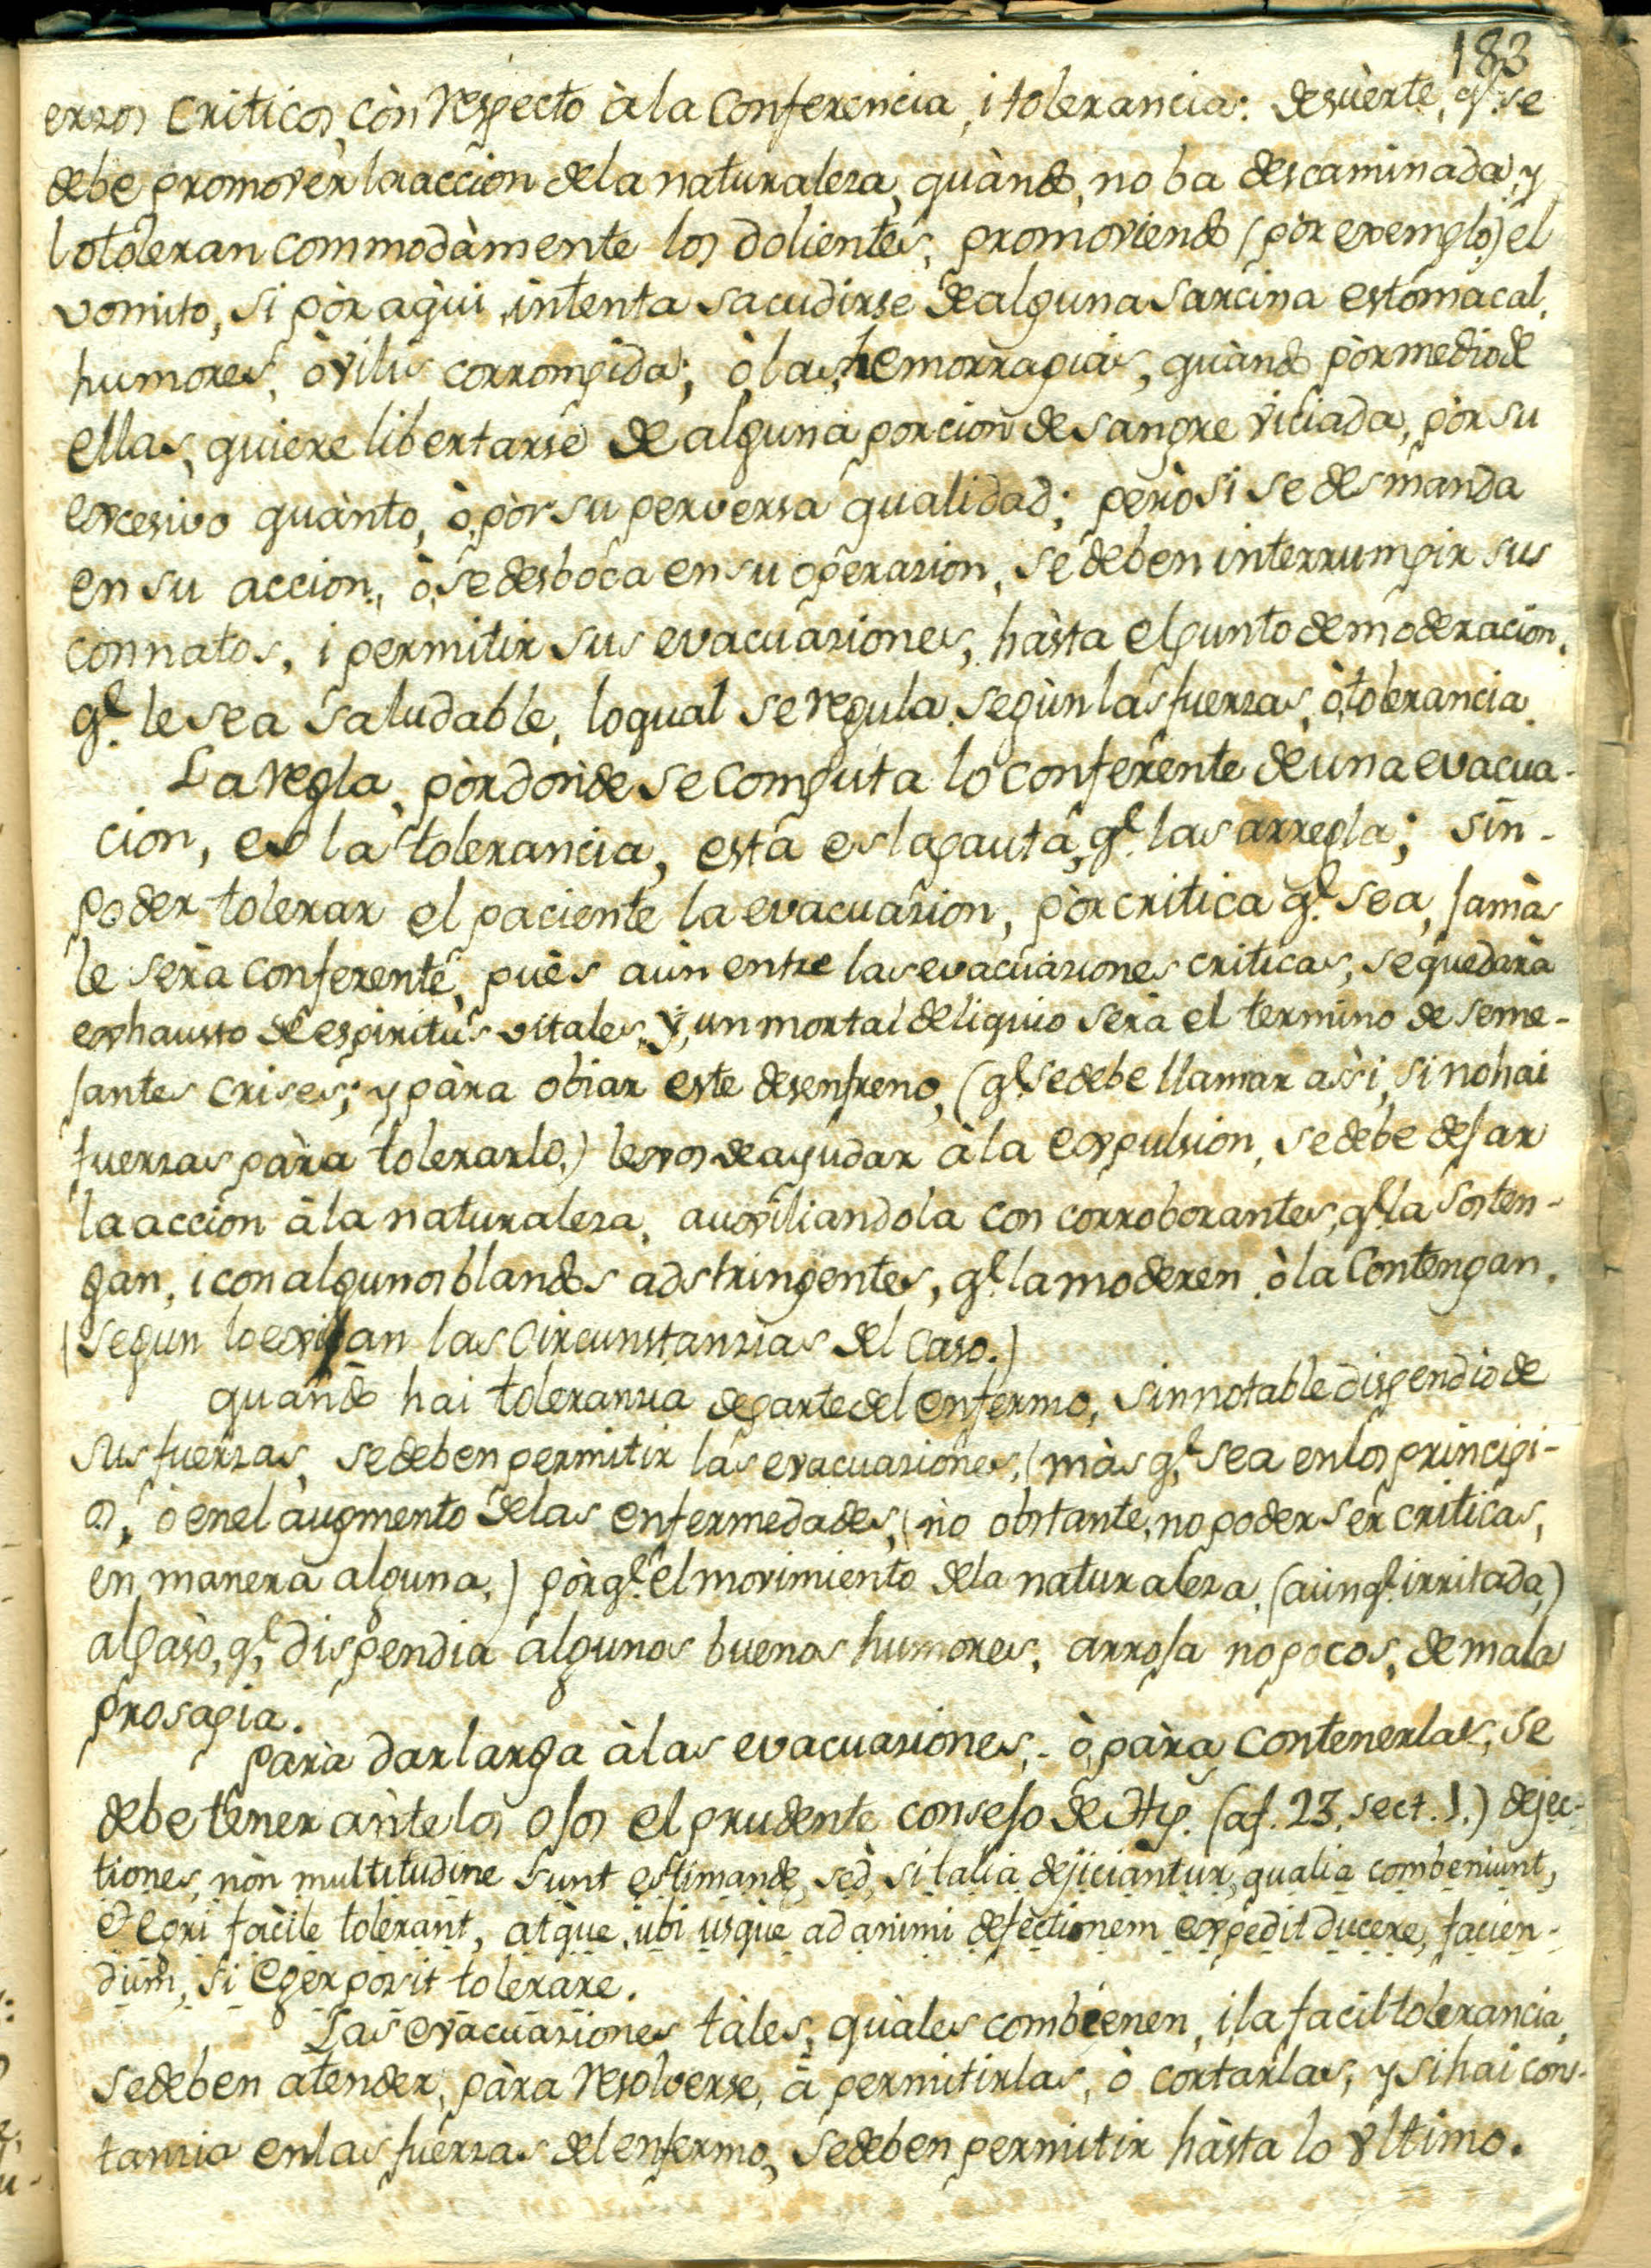 183
erzos criticos, còn respecto à la conferencia, i tolerancia: desuèrte, q.e se
debe promover la accion de la naturaleza, quàndo, no ba descaminada, y
lo toleran commodàmente los dolientes, promoviendo (pòr exemplo,) el
vomito, si pòr aqùi, intenta sacudirse de alguna sarcina estomacal,
humores, ò vilis corrompida; ò las hemorragias, quàndo pòr medio de
ellas, quiere libertarse de alguna porcion de sangre viciada, pòr su
excesivo quànto, ò, pòr su perversa qualidad; però si se desmanda
en su accion, ò, se desboca en su operazion, se deben interrumpir sus
connatos, i permitir sus evacuaziones, hàsta el punto de moderacion,
q.e le sea saludable, lo qual se regula, segùn las fuerzas, ò, tolerancia.
La regla, pòr dònde se computa lo conferente de una evacua-
cion, es la tolerancia, esta es la pauta, q.e las arregla; sin-
poder tolerar el paciente la evacuazion, pòr critica q.e sea, jamàs
le serà conferente, puès aùn entre las evacuaziones criticas, se quedarà
exhausto de espiritus vitales, y, un mortal deliquio serà el termino de seme-
jantes crises; y pàra obiar este desenfreno, (q.e se debe llamar assi, si no hai
fuerzas pàra tolerarlo,) lexos de ayudar à la expulsion, se debe dejar
la accion à la naturaleza, auxiliandola con corroborantes, q.e la sosten-
gan, i con algunos blandos adstringentes, q.e la moderen, ò la contengan,
(segun lo exijan las circunstanzias del caso.)
quàndo hai toleranzia de parte del enfermo, sin notable dispendio de
sus fuerzas, se deben permitir las evacuaziones, (màs q.e sea en los principi-
os, ò en el àugmento de las enfermedades, (nò obstante, no poder sèr criticas,
en manera alguna,) pòrq.e el movimiento de la naturaleza, (aùnq.e irritada,)
al paso, q.e dispendia algunos buenos humores, arroja no pocos, de mala
prosapia.
parà dar larga à las evacuaziones, - ò, pàra contenerlas, se
debe tener ànte los ojos el prudente consejo de Hip. (af. 23. sect. 1.) dejec-
tiones, nòn multitudine sunt estimande, sèd, si talia dejiciàntur, qualia combeniunt,
& egri fàcile tolerant, atque, ubi usque ad animi defectionem expedit ducere, facien-
dum, si eger possit tolerare.
Las evacuaziones tàles, quàles combienen, i la facil tolerancia,
se deben atender, pàra resolverse, à permitirlas, ò cortarlas, y si hai cons-
tanzia en las fuerzas del enfermo, se deben permitir hàsta lo ultimo.